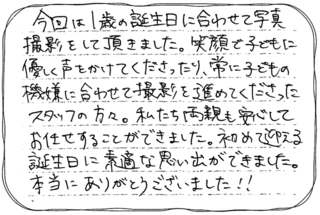 今回は1歳の誕生日に合わせて写真
撮影をして頂きました。笑顔で子どもに
優しく声をかけてくださったり、常に子どもの
機嫌に合わせて撮影を進めてくださった
スタッフの方々。私たち両親も安心して
お任せすることができました。初めて迎える
誕生日に素適な思い出ができました。
本当にありがとうございました!!